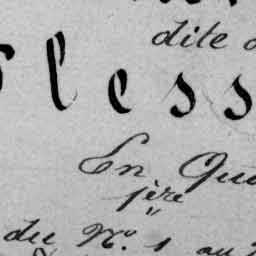 dite
less
En Qua
1ère
du No. 1 au